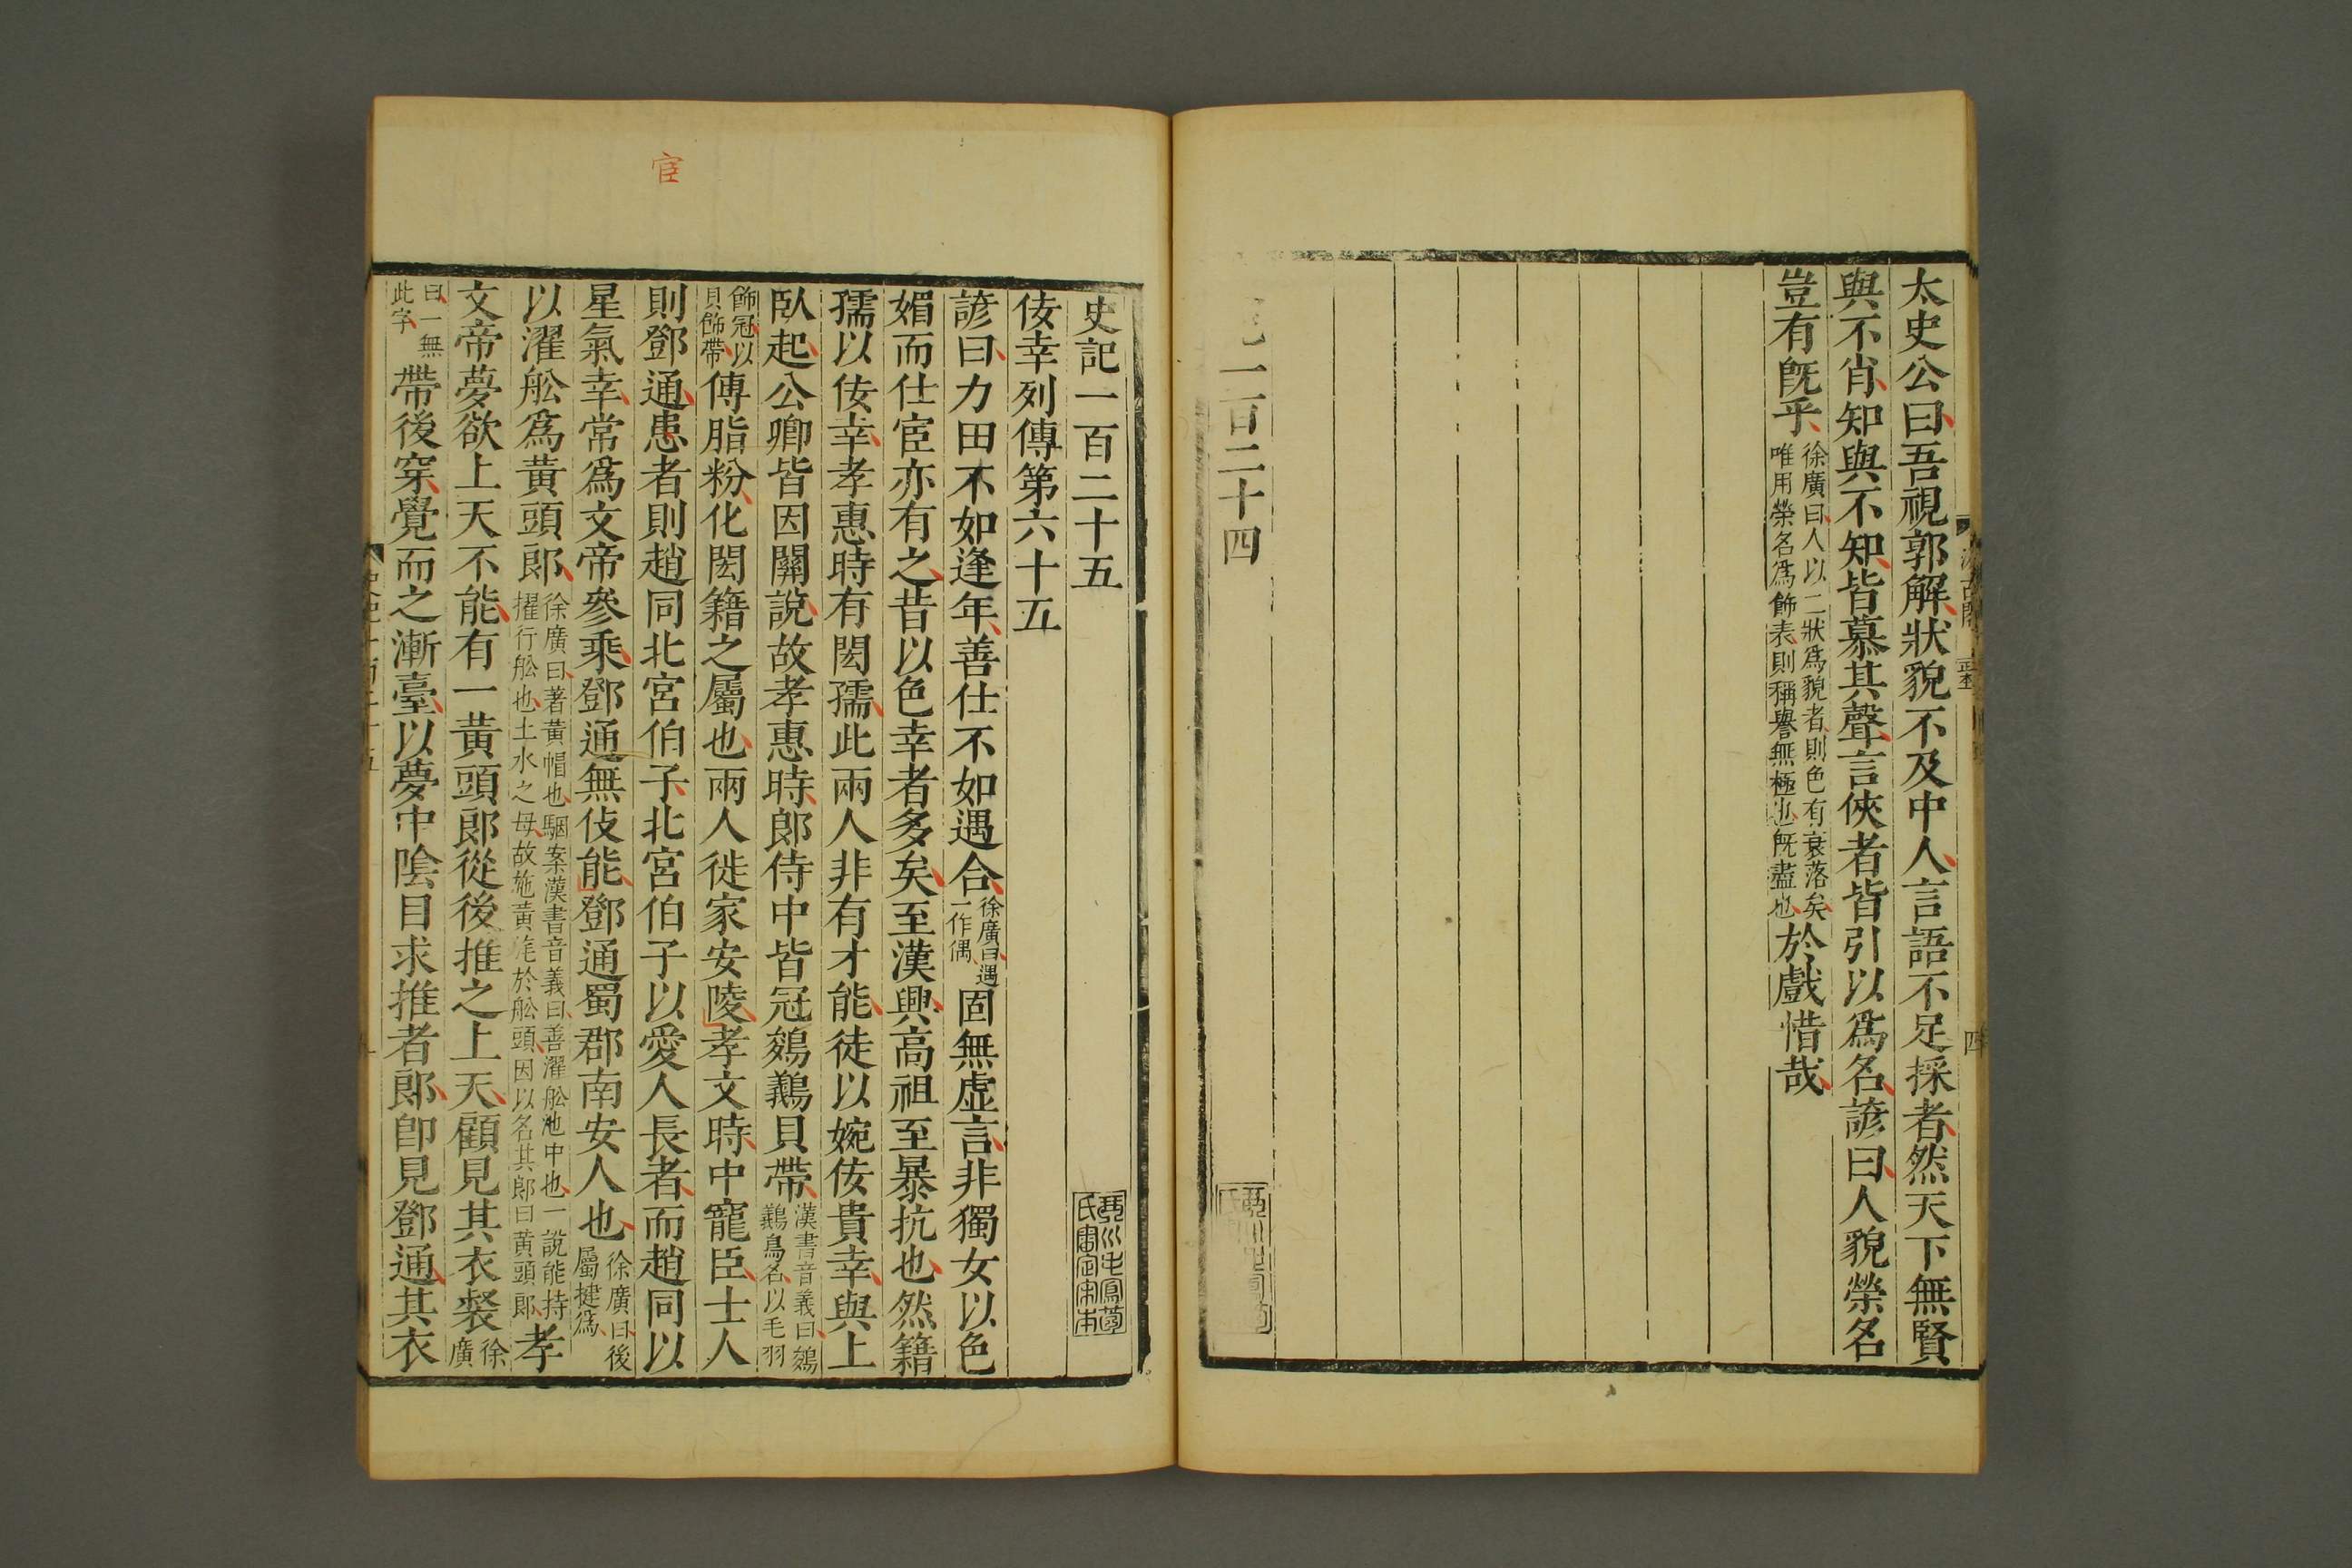 太史公曰吾視郭解狀貌不及中人言語不足採者然天下無賢
與不肖知與不知皆慕其聲言俠者皆引以爲名諺曰人貌榮名
豈有旣乎徐廣曰人以二狀爲貌者則色有衰落矣唯用榮名爲飾表則稱譽無極也旣盡也於戲惜哉
一百二十四
史記一百二十五
琴川毛鳳苞氏審定宋本
佞幸列傳第六十五
諺曰力田不如逢年善仕不如遇合徐廣曰遇一作偶固無虛言非獨女以色
媚而仕宦亦有之昔以色幸者多矣至漢興高祖至暴抗也然籍
孺以佞幸孝惠時有閎孺此兩人非有才能徒以婉佞貴幸與上
臥起公卿皆因關說故孝惠時郎侍中皆冠鵕鸃貝帶漢書音義曰鵕鸃鳥名以毛羽
飾冠以貝飾帶傅脂粉化閎籍之屬也兩人徙家安陵孝文時中寵臣士人
則鄧通患者則趙同北宮伯子北宮伯子以愛人長者而趙同以
星氣幸常爲文帝參乘鄧通無伎能鄧通蜀郡南安人也徐廣曰後屬揵爲
以濯舩爲黃頭郞徐廣曰著黃帽也駰案漢書音義曰善濯舩池中也一說能持擢行舩也土水之母故施黃旄於舩頭因以名其郞曰黃頭郞孝
文帝夢欲上天不能有一黃頭郞從後推之上天顧見其衣裻徐廣
曰一無此字帶後穿覺而之漸臺以夢中陰目求推者郞卽見鄧通其衣
宦